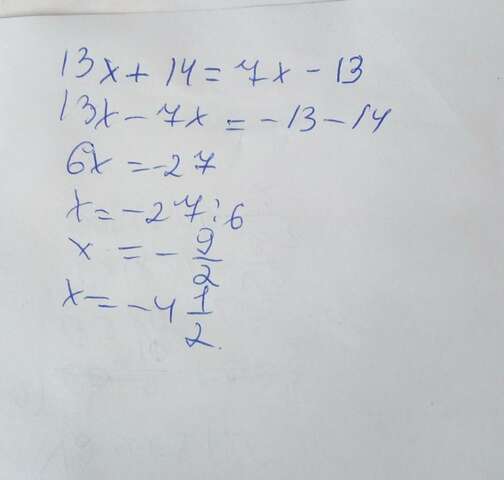 13x + 14 = 7x - 13
13x - 7x = -13 - 14
6x = -27
x = -27 : 6
x = - 9/2
x = -4 1/2.